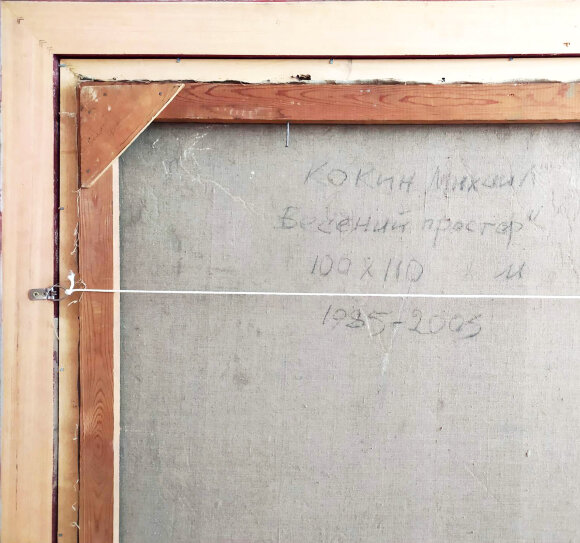 Кокин Михаил
"Весений простор"
100 х 110 м
1985-2005